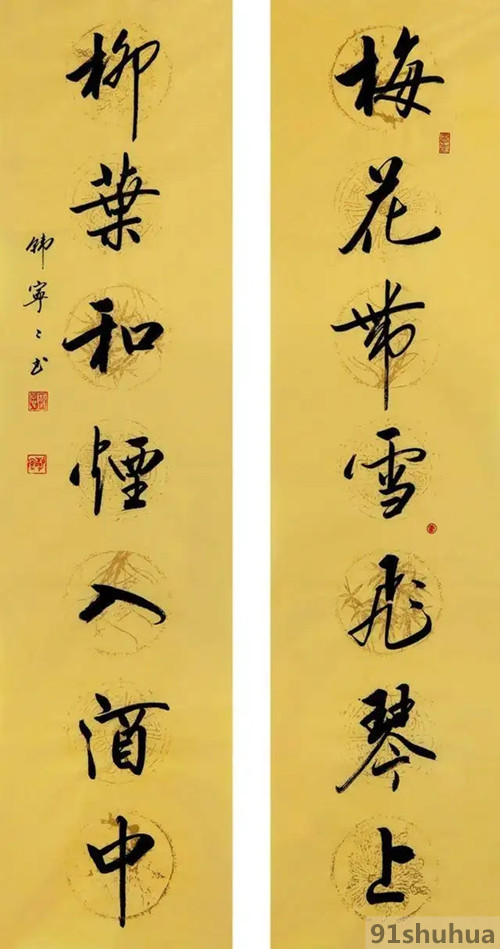 梅花帶雪飛琴上
柳葉和煙入酒中
韓寧寧书
91shuhua